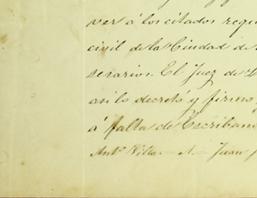 ver á los citados requi
civil de la Ciudad de
serario. El Juez de
asi lo decretó y firmó
á falta de Escriban
Antº Villa. — A. — Juan